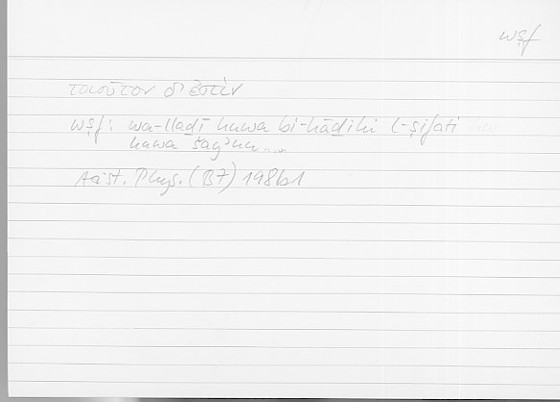 wṣf
τοιοῦτον δ' ἐστὶν
wṣf: wa-lladī huwa bi-hādihi l-ṣifati
huwa šayʾun...
Arist. Phys. (B7) 198b1